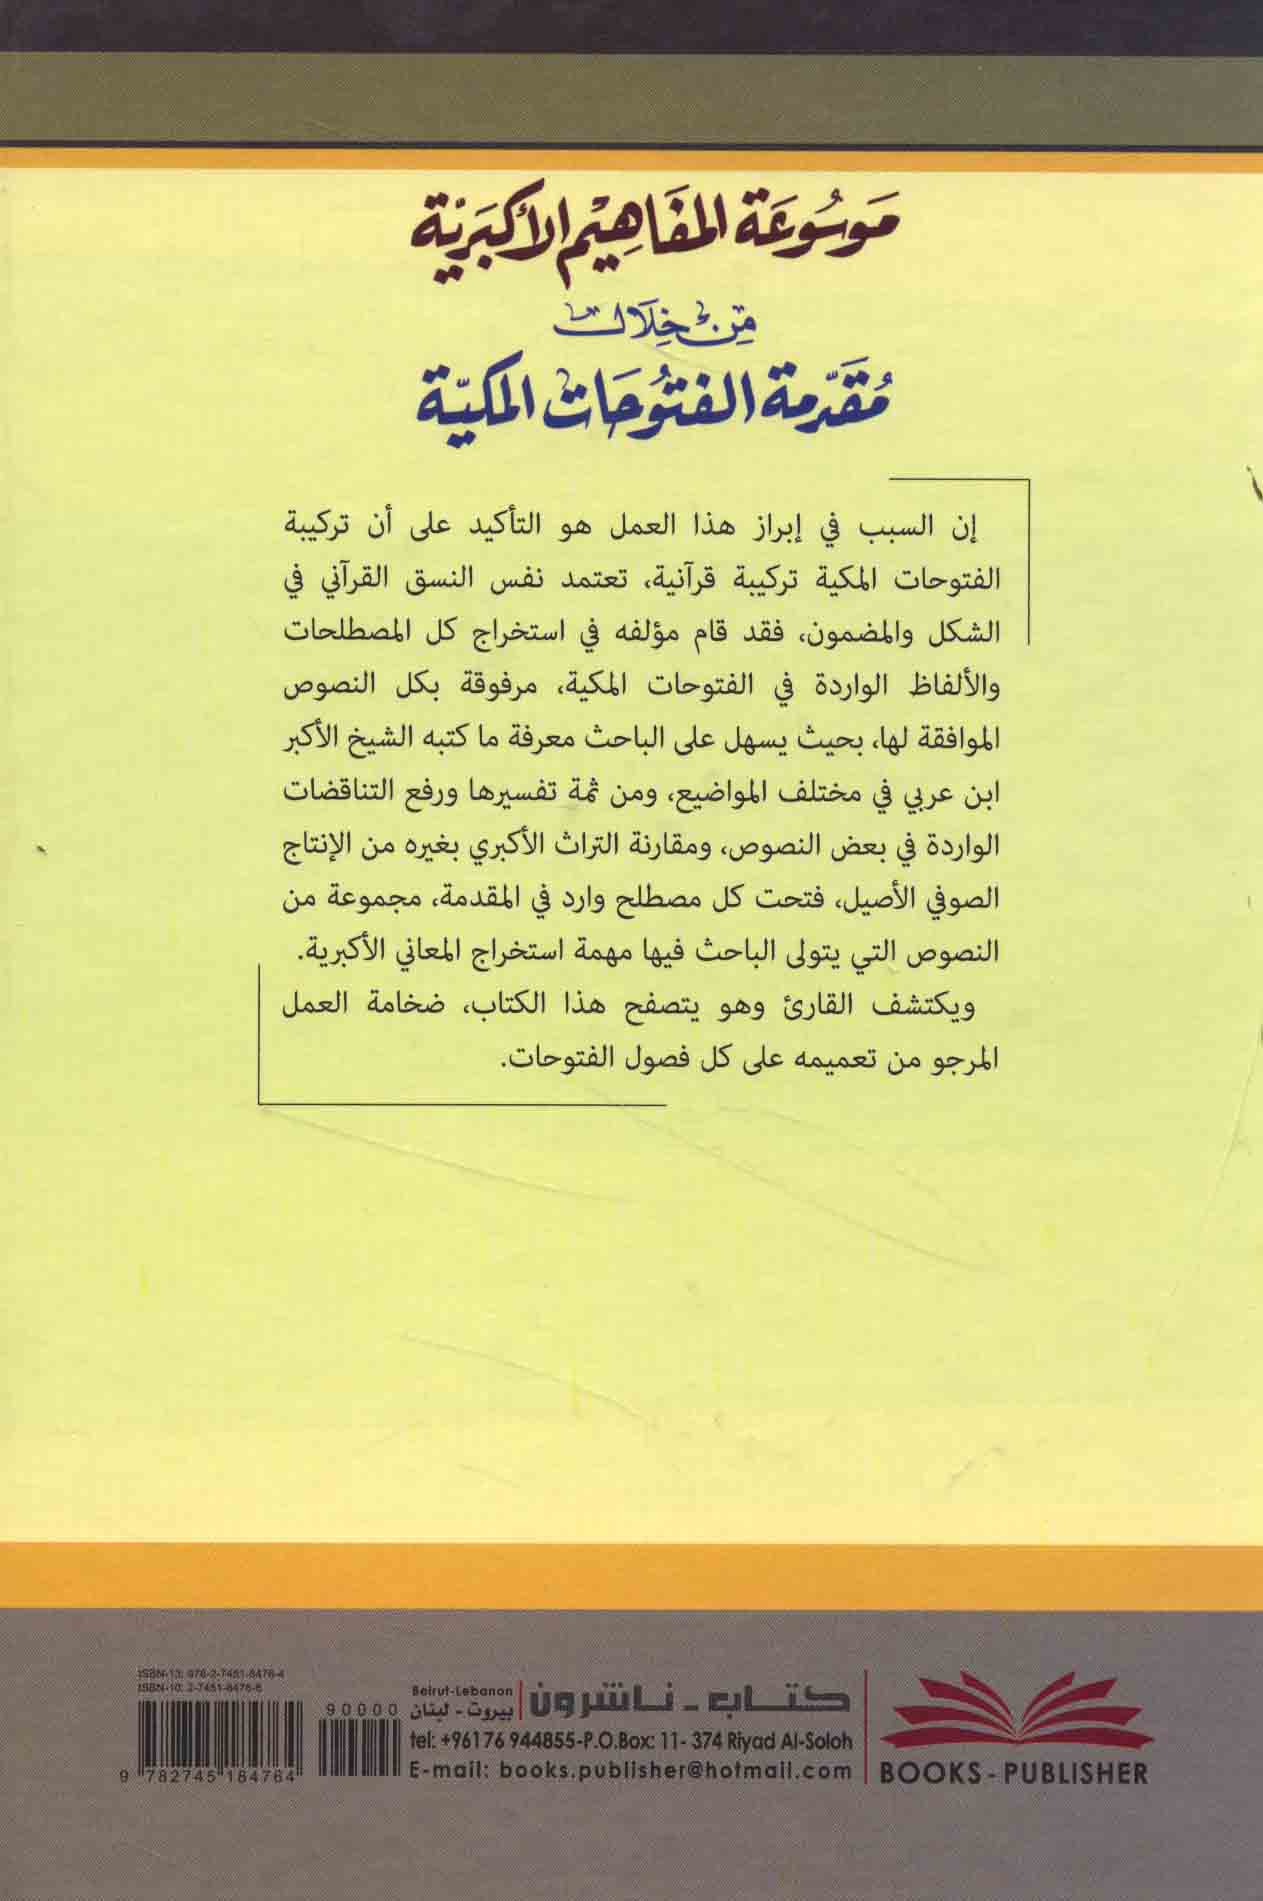 مَوسُوعَة المفَاهِيْم الأكبَريّة
مِن خِلَال
مُقَدّمة الفتُوحَات المكيّة
إن السبب في إبراز هذا العمل هو التأكيد على أن تركيبة
الفتوحات المكية تركيبة قرآنية، تعتمد نفس النسق القرآني في
الشكل والمضمون، فقد قام مؤلفه في استخراج كل المصطلحات
والألفاظ الواردة في الفتوحات المكية، مرفوقة بكل النصوص
الموافقة لها، بحيث يسهل على الباحث معرفة ما كتبه الشيخ الأكبر
ابن عربي في مختلف المواضيع، ومن ثمة تفسيرها ورفع التناقضات
الواردة في بعض النصوص، ومقارنة التراث الأكبري بغيره من الإنتاج
الصوفي الأصيل، فتحت كل مصطلح وارد في المقدمة، مجموعة من
النصوص التي يتولى الباحث فيها مهمة استخراج المعاني الأكبرية.
ويكتشف القارئ وهو يتصفح هذا الكتاب، ضخامة العمل
المرجو من تعميمه على كل فصول الفتوحات.
ISBN-13: 978-2-7451-8476-4
ISBN-10: 2-7451-8476-8
90000
9 782745 184764
كتاب - ناشرون
Beirut-Lebanon
بيروت - لبنان
tel: +961 76 944855-P.O.Box: 11- 374 Riyad Al-Soloh
E-mail: books.publisher@hotmail.com
BOOKS - PUBLISHER